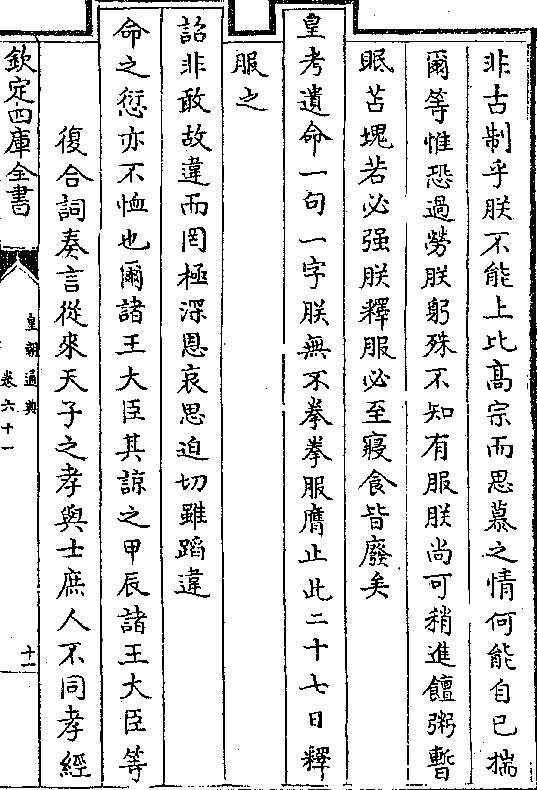 非古制乎朕不能上比髙宗而思慕之情何能自已揣
爾等惟恐過勞朕躬殊不知有服朕尚可稍進饘粥暫
眠苫塊若必强朕釋服必至寢食皆廢矣
皇考遺命一句一字朕無不拳拳服膺止此二十七日釋
服之
詔非敢故違而罔極深恩哀思迫切雖蹈違
命之愆亦不恤也爾諸王大臣其諒之甲辰諸王大臣等
復合詞奏言從來天子之孝與士庶人不同孝經
欽定四庫全書
皇朝通典
卷六十一
十一